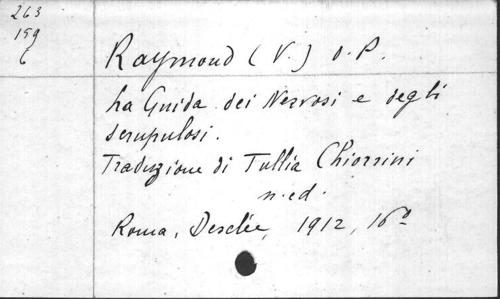 263
159
C
Raymond (V.) O.P.
La Guida dei Nervosi e degli
scrupulosi.
Traduzione di Tullia Chiorrini
n. ed.
Roma, Desclée, 1912, 16°